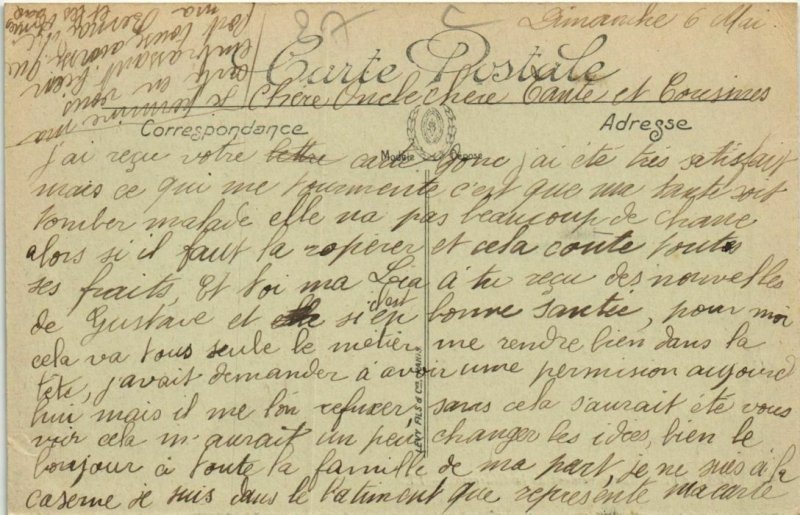 Dimanche 6 Mai
Carte Postale
Chère Oncle chère Tante et Cousines
Correspondance
Adresse
j'ai reçu votre lettre carte donc j'ai été très satisfait
mais ce qui me tourmente c'est que ma tante soit
tomber malade elle na pas beaucoup de chance
alors si il faut la ropérer et cela coûte toutes
ses fraits, Et toi ma Léa à tu reçu des nouvelles
de Gustave et si il est en bonne santée, pour moi
cela va tous seule le métier me rendre bien dans la
tête, j'avait demander à avoir une permision aujourd
hui mais il me l'on refuser sans cela s'aurait été vous
voir cela m'aurait un peu changer les idées, bien le
bonjour à toute la famille de ma part, je ne suis à la
caserne je suis dans le batiment que représente ma carte
je termine ma
carte en vous
embrassant bien
fort tous
LEVY FILS & Cie PARIS